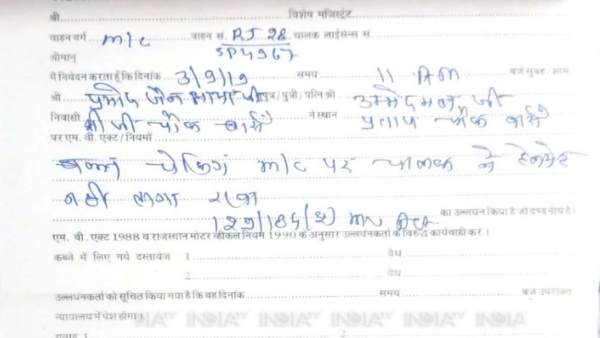 श्री विशेष मजिस्ट्रेट
वाहन वर्ग m/c वाहन सं. RJ 28 चालक लाईसेन्स सं.
श्रीमान् SP4967
मैं निवेदन करता हूँ कि दिनांक 3/9/19 समय 11 AM बजे सुबह / शाम
श्री प्रमोद जैन भाया जी पुत्र / पुत्री / पत्नि श्री उम्मेदमल जी
निवासी श्री जी चौक बारां ने स्थान प्रताप चौक बारां
पर एम. वी. एक्ट / नियमों
चेकिंग m/c पर चालक ने हेलमेट
नही लगा रखा
129/184 MV Act का उल्लघन किया है जो दण्डनीय है।
एम. वी. एक्ट 1988 व राजस्थान मोटर व्हीकल नियम 1990 के अनुसार उल्लघंनकर्ता के विरुद्ध कार्यवाही करें।
कब्जे में लिए गये दस्तावेज 1 वैध
2 वैध
उल्लघनकर्ता को सूचित किया गया है कि वह दिनांक समय बजे उपरोक्त
न्यायालय में पेश होगा।
INDIA TV INDIA TV INDIA TV INDIA TV INDIA
गवाह 1 2